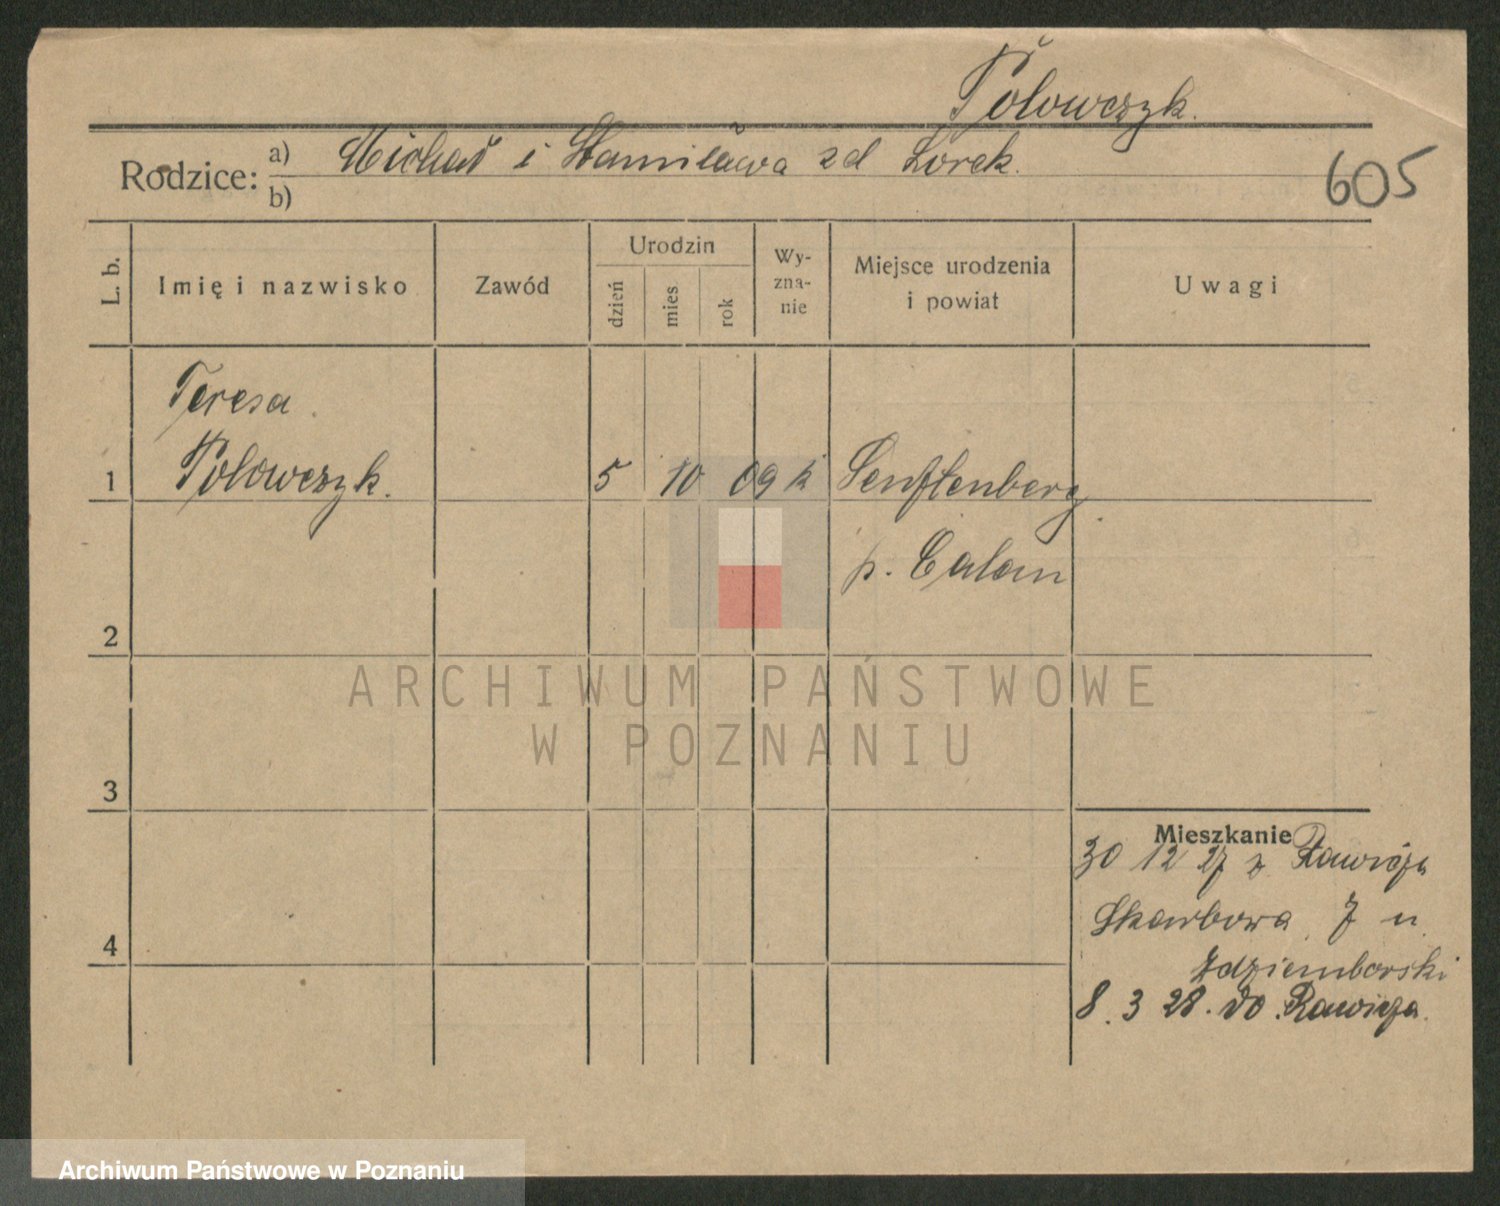 Połowczyk.
Rodzice: a) Michał i Stanisława zd Lorek.
b)
605
L. b.
Imię i nazwisko
Zawód
Urodzin
dzień
mies
rok
Wy-
zna-
nie
Miejsce urodzenia
i powiat
Uwagi
Teresa
1 Połowczyk. 5 10 09 k Senftenberg
p. Calau
2
3
4
Mieszkanie
30 12 27 z Rawicza
Skarbowa 7 u
Zdziemborski
8. 3 28. do Rawicza.
ARCHIWUM PAŃSTWOWE
W POZNANIU
Archiwum Państwowe w Poznaniu